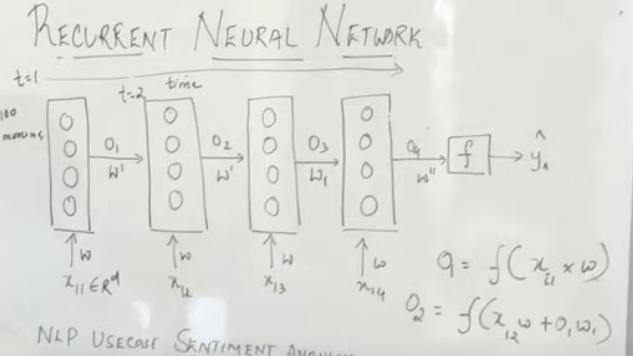 RECURRENT NEURAL NETWORK
t=1 t=2 time
100
O₁ O₂ O₃ O₄ f ŷ₁
W' W' W₁ W"
W W W W
x₁₁∈ℝᵈ x₁₂ x₁₃ x₁₄
O₁ = f(x₁₁ × W)
O₂ = f(x₁₂W + O₁W₁)
NLP USECASE SENTIMENT